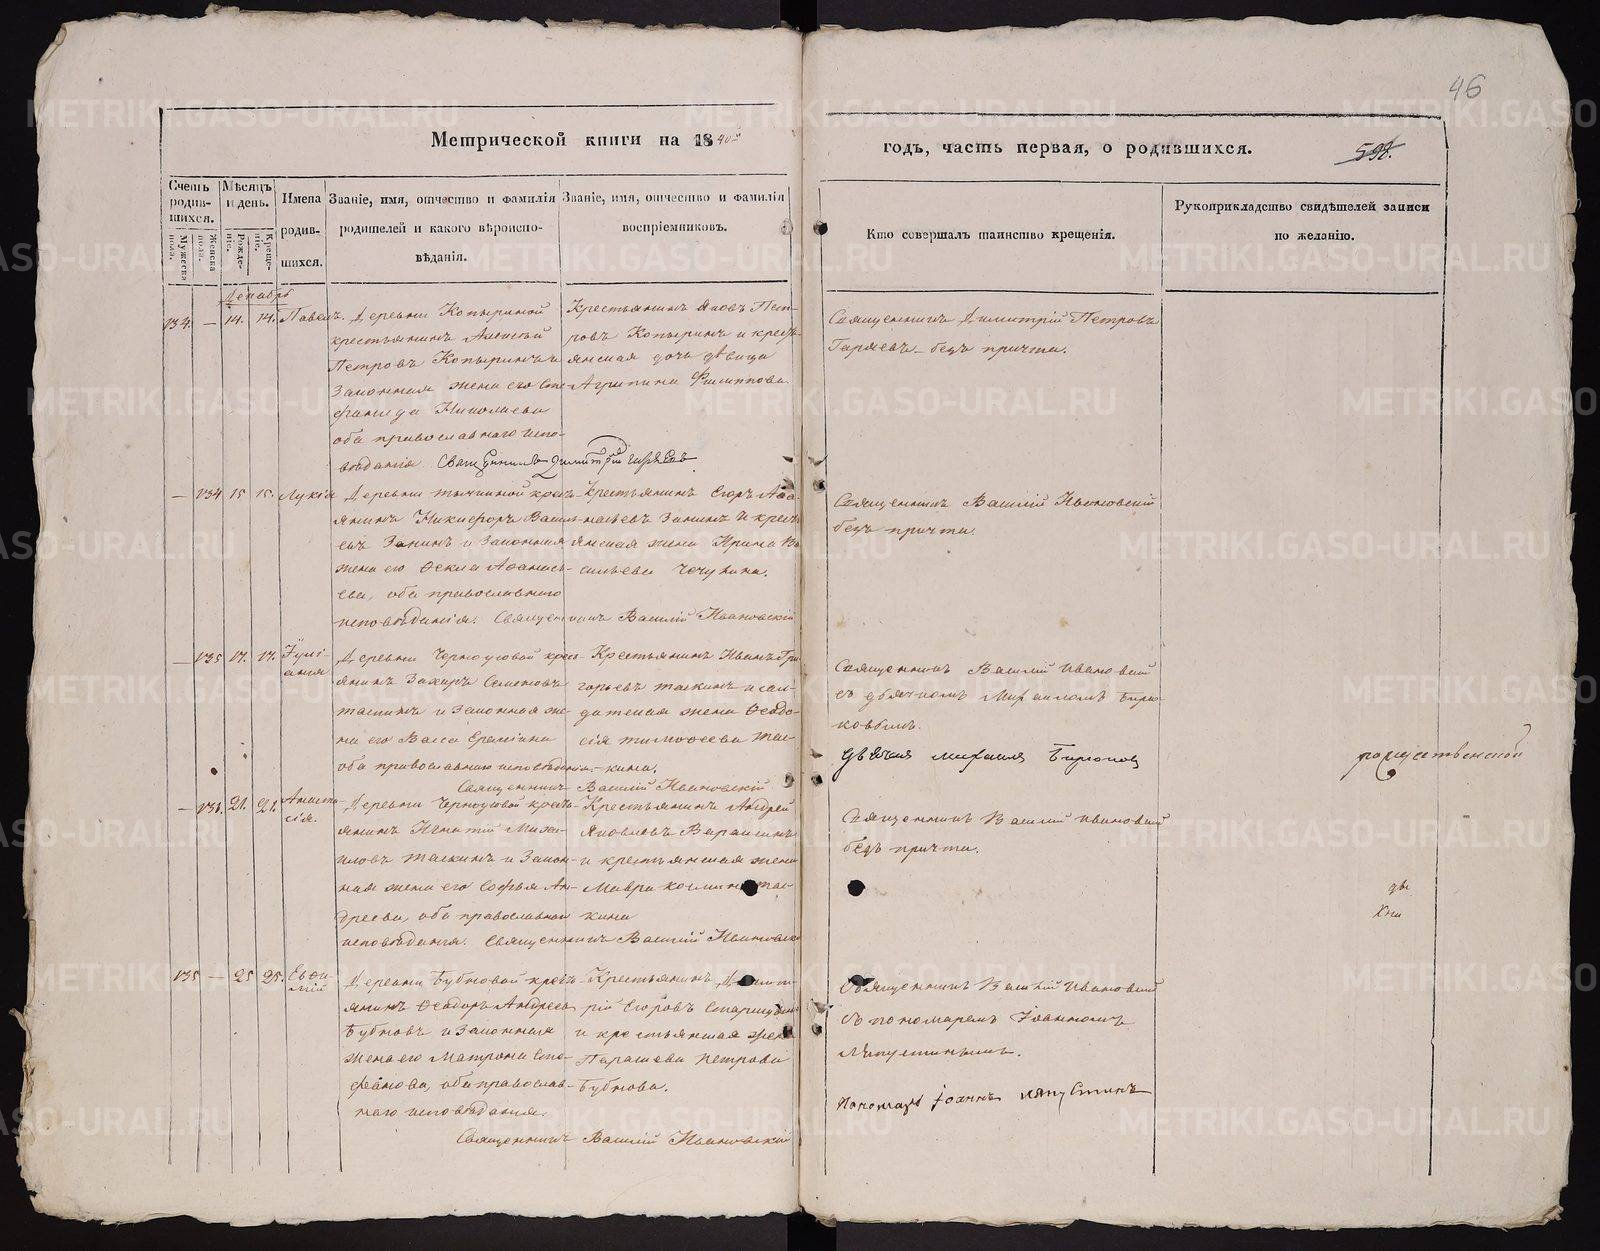 46
Метрической книги на 1840й
годъ, часть первая, о родившихся.
598.
Счетъ родив-шихся.
Мужеска пола.
Женска пола.
Мѣсяцъ и день.
Рожде-ніе.
Креще-ніе.
Имена родив-шихся.
Званіе, имя, отчество и фамилія родителей и какого вѣроиспо-вѣданія.
Званіе, имя, отчество и фамилія воспріемниковъ.
Кто совершалъ таинство крещенія.
Рукоприкладство свидѣтелей записи по желанію.
Декабрь
134. — 14. 14. Павелъ.
Деревни Копыриной
крестьянинъ Алексѣй
Петровъ Копыринъ и
Законная жена его Сте-
фанида Николаева
оба православнаго испо-
вѣданія. Священникъ Димитрій Гаряевъ
Крестьянинъ Яковъ Пет-
ровъ Копыринъ и кресть-
янская дочь дѣвица
Агрипина Филиппова.
Священникъ Димитрій Петровъ
Гаряевъ — безъ причта.
— 134 15 15. Лукія
Деревни крест-
янинъ Никифоръ Василь-
евъ Занинъ и Законная
жена его Ѳекла Аѳанась-
ева, оба православнаго
исповѣданія. Священникъ Василій Ивановскій
Крестьянинъ Егоръ Аѳа-
насьевъ Занинъ и кресть-
янская жена Ирина Ва-
сильева
Священникъ Василій Ивановскій
безъ причта.
— 135 17. 17. Іулі-
анія
Деревни Черноусовой крест-
янинъ Захаръ Семеновъ
Таскинъ и Законная же-
на его Васса
оба православнаго исповѣданія.
Священникъ Василій Ивановскій
Крестьянинъ Иванъ Гри-
горьевъ Таскинъ и сол-
датская жена Ѳеодо-
сія Тимоѳеева Тас-
кина.
Священникъ Василій Ивановскій
съ дьячкомъ Михаиломъ Бирю-
ковымъ.
Дьячекъ Михаилъ Бирюковъ
рождественской
— 136. 21. 21. Анаста-
сія.
Деревни Черноусовой кресть-
янинъ Игнатій Миха-
иловъ Таскинъ и Закон-
ная жена его Софья Ан-
дреева, оба православнаго
исповѣданія. Священникъ Василій Ивановскій
Крестьянинъ Андрей
Яковлевъ
и крестьянская жена
Мавра Козмина Тас-
кина
Священникъ Василій Ивановскій
безъ причта.
135 — 25 25. Евѳи-
мій
Деревни Бубновой кресть-
янинъ Ѳеодоръ Андреевъ
Бубновъ и Законная
жена его Матрона Сте-
фанова, оба православ-
наго исповѣданія.
Священникъ Василій Ивановскій
Крестьянинъ Димит-
рій Егоровъ
и крестьянская жена
Параскева Петрова
Бубнова.
Священникъ Василій Ивановскій
съ пономаремъ Іоанномъ
Ляпустинымъ.
Пономарь Іоаннъ Ляпустинъ
METRIKI.GASO-URAL.RU